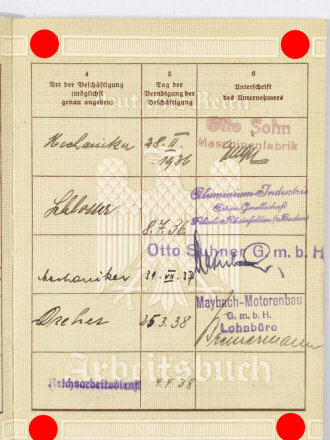 4
Art der Beschäftigung
(möglichst
genau angeben)
5
Tag der
Beendigung der
Beschäftigung
6
Unterschrift
des Unternehmers
Deutsches Reich
Mechaniker
28. II.
1936
Otto Sohn
Maschinenfabrik
Schlosser
8.7.36.
Aluminium-Industrie
Aktien Gesellschaft
Otto Suhner G.m.b.H
Mechaniker
31. VII. 37
Dreher
25.3.38
Maybach-Motorenbau
G.m.b.H.
Lohnbüro
Arbeitsbuch
Reichsarbeitsdienst
4.4.38